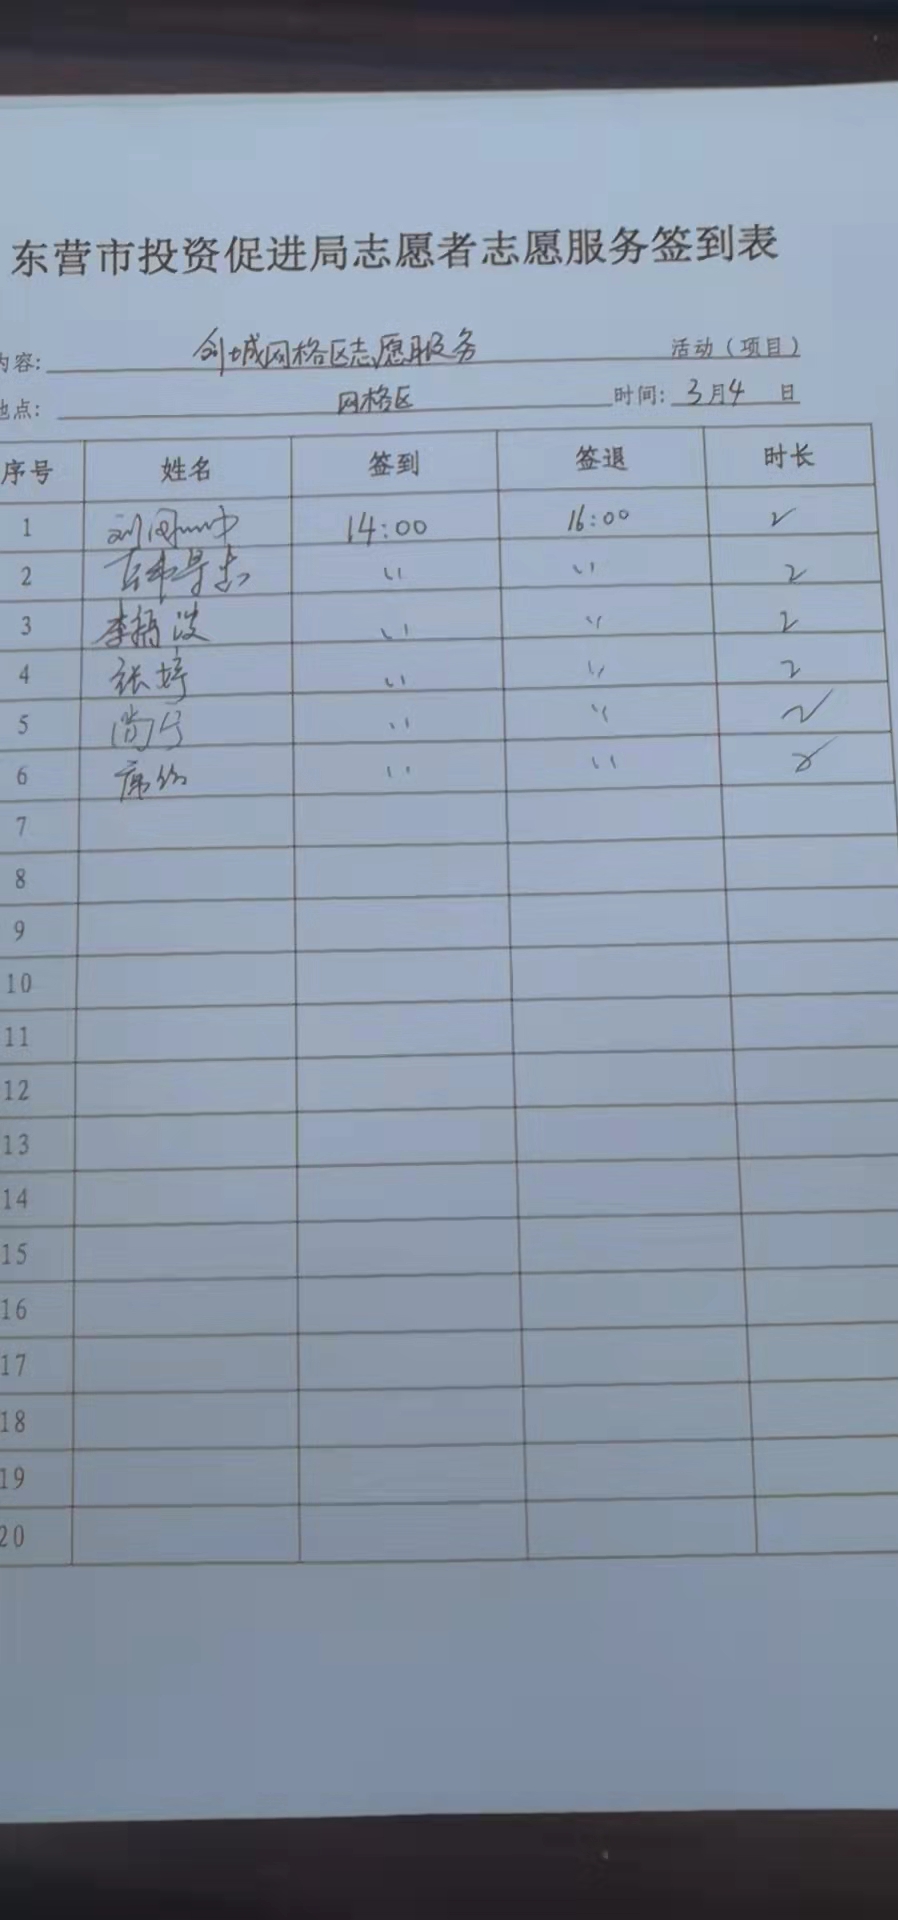 东营市投资促进局志愿者志愿服务签到表
内容: 创城网格区志愿服务 活动（项目）
地点: 网格区 时间: 3月4 日
序号 姓名 签到 签退 时长
1 14:00 16:00 2
2 〃 〃 2
3 李 〃 〃 2
4 张婷 〃 〃 2
5 〃 〃 2
6 〃 〃 2
7
8
9
10
11
12
13
14
15
16
17
18
19
20